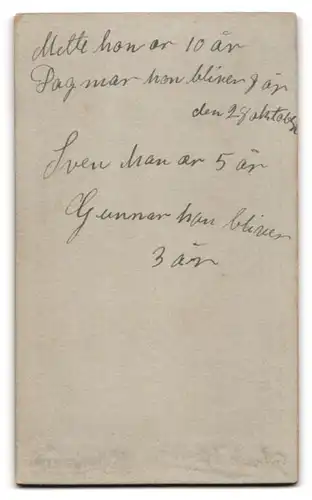 Mette hon ar 10 år
Dagmar hon bliver 9 år
den 28 oktober
Sven han ar 5 år
Gunnar han bliver
3 år